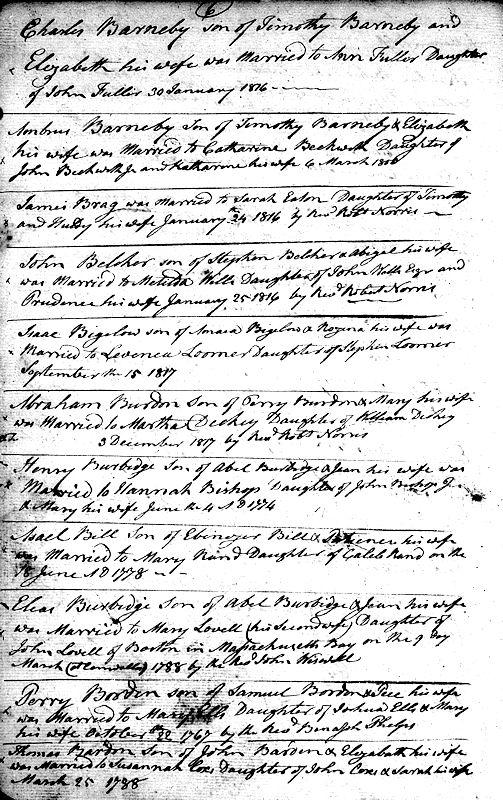 6
Charles Barneby son of Timothy Barneby and
Elizabeth his wife was Married to Ann Fuller Daughter
of John Fuller 30 January 1816
Ambrus Barneby Son of Timothy Barneby & Elizabeth
his wife was Married to Catharine Beckwith Daughter of
John Beckwith Jr and Katharine his wife 6 March
James Brag was Married to Sarah Eaton Daughter of Timothy
and Huldy his wife January 24 1816 by Revd Robt Norris
John Belcher son of Stephen Belcher & Abigal his wife
was Married to Matilda Wills Daughter of John Wills Esqr and
Prudence his wife January 25 1816 by Revd Robert Norris
Isaac Bigelow son of Amasa Bigelow & Roxena his wife was
Married to Levenea Loomer Daughter of Stephen Loomer
September the 15 1817
Abraham Burdon Son of Perry Burdon & Mary his wife
was Married to Martha Dickey Daughter of William Dickey
3 December 1817 by Revd Robt Norris
Henry Burbidge Son of Abel Burbidge & Jean his wife was
Married to Hannah Bishop Daughter of John Bishop Jr
& Mary his wife June the 4 AD 1774
Asael Bill Son of Ebenezer Bill & his wife
was Married to Mary Rand Daughter of Caleb Rand on the
18 June AD 1778
Elias Burbidge Son of Abel Burbidge & Jean his wife
was Married to Mary Lovell (his Second wife) Daughter of
John Lovell of Boston in Massachusetts Bay on the 9 day
March 1788 by the Revd John Wiswell
Perry Bordin son of Samuel Bordon & his wife
was Married to Mary Ells Daughter of Joshua Ells & Mary
his wife October 22 1767 by the Revd Benajah Phelps
Thomas Bardon Son of John Barden & Elizabeth his wife
was Married to Susannah Coxs Daughter of John Coxs & Sarah his wife
March 25 1788